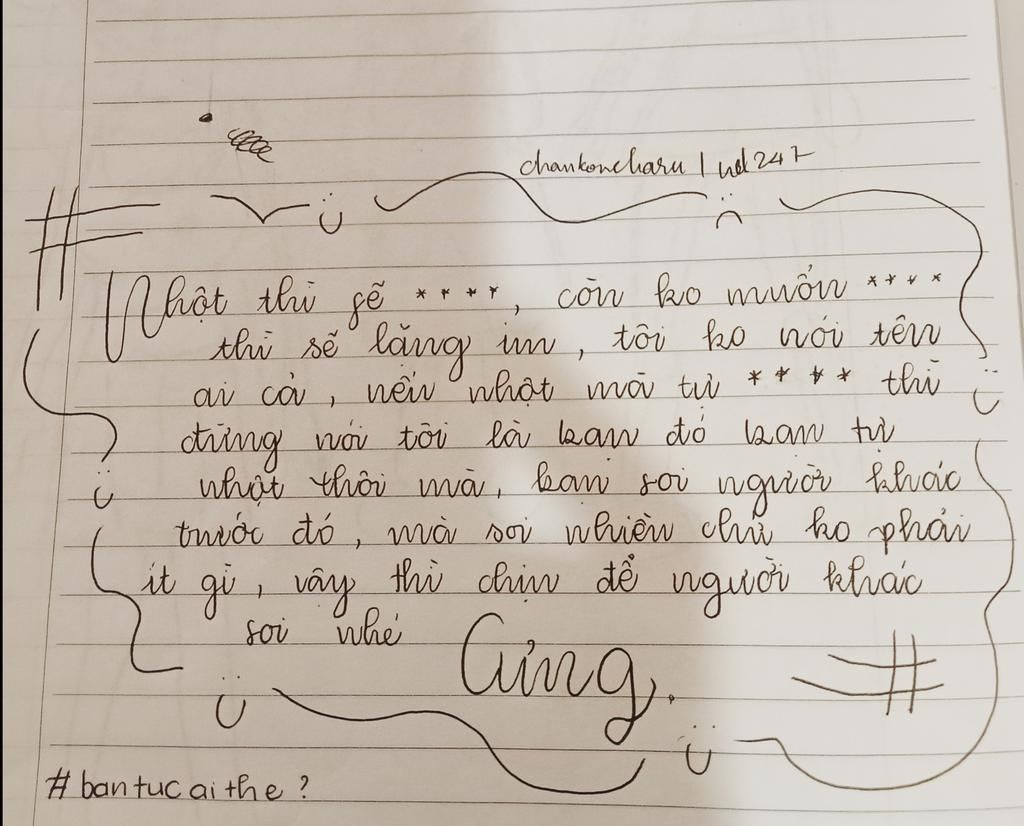 chankoncharu | nd247
Nhột thì sẽ ****, còn ko muốn ****
thì sẽ lặng im, tôi ko nói tên
ai cả, nếu nhột mà tự **** thì
đừng nói tôi là bạn đó bạn tự
nhột thôi mà, bạn soi người khác
trước đó, mà soi nhiều chứ ko phải
ít gì, vậy thì chịu để người khác
soi nhé
Cưng.
#bantucaithe?